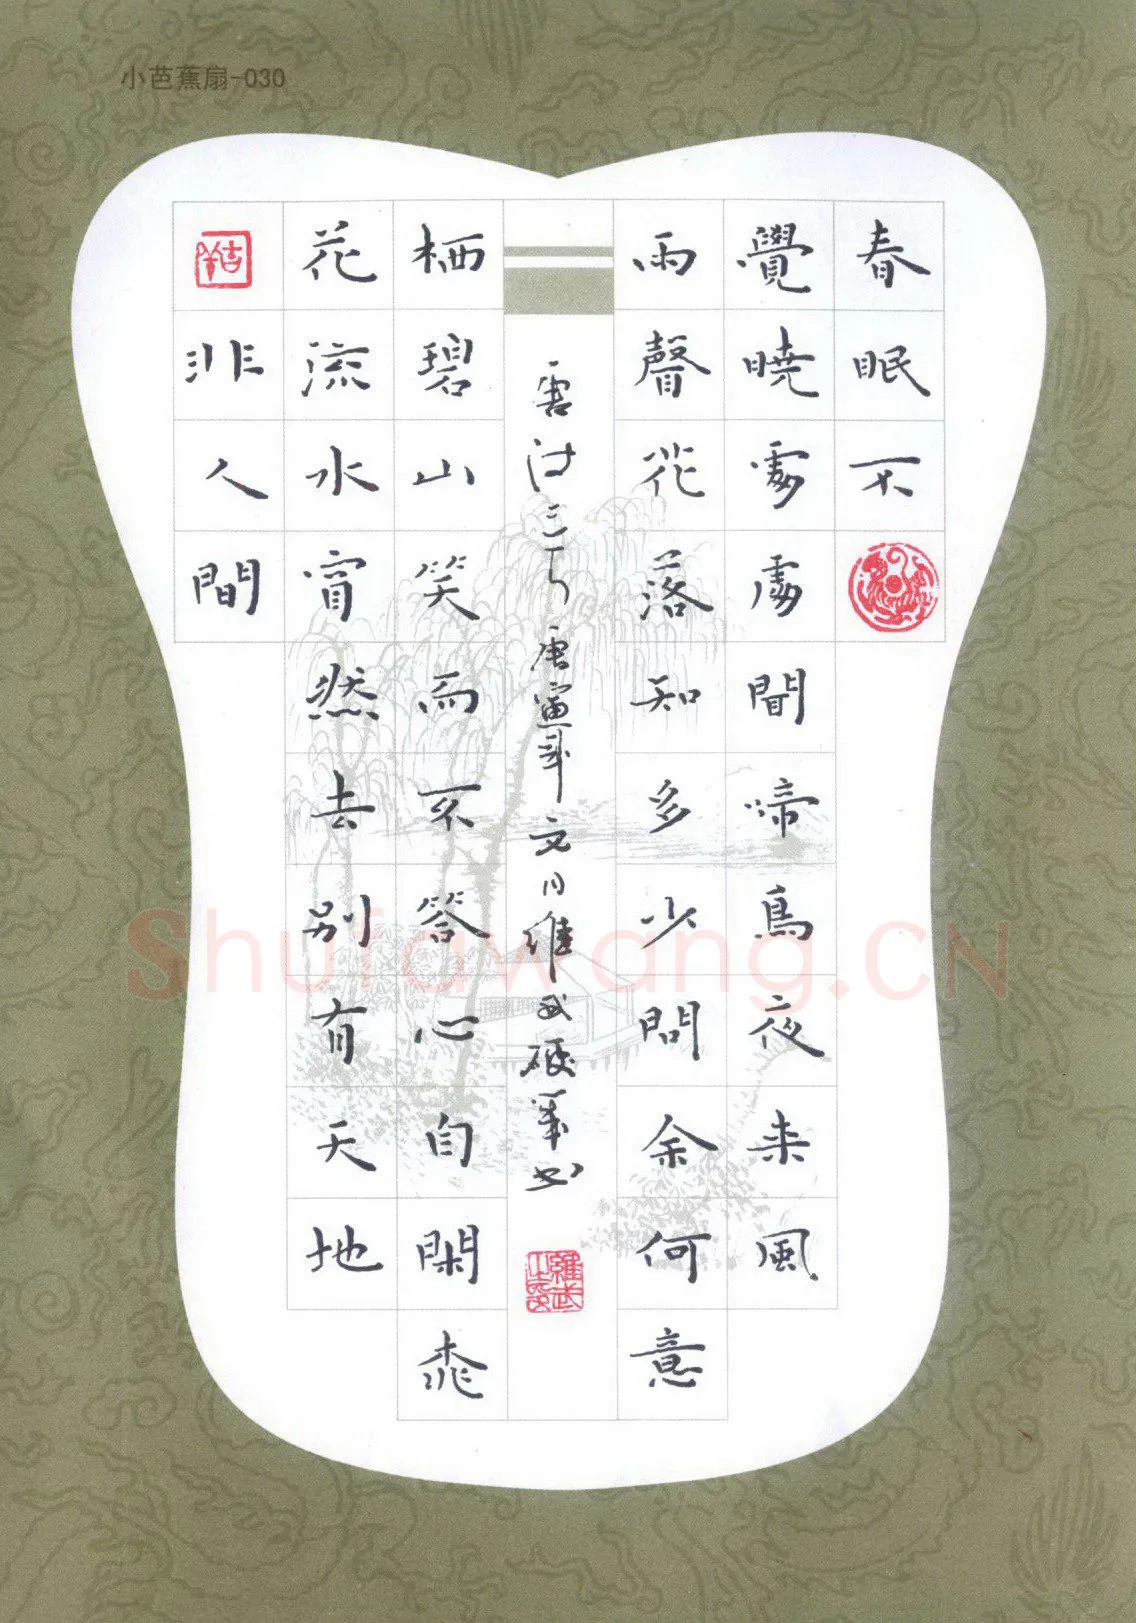 小芭蕉扇-030
春眠不
覺曉處處聞啼鳥夜来風
雨聲花落知多少問余何意
庚寅年 月維武硬筆书
栖碧山笑而不答心自閑桃
花流水窅然去别有天地
吉羊
非人間
Shufawang.CN